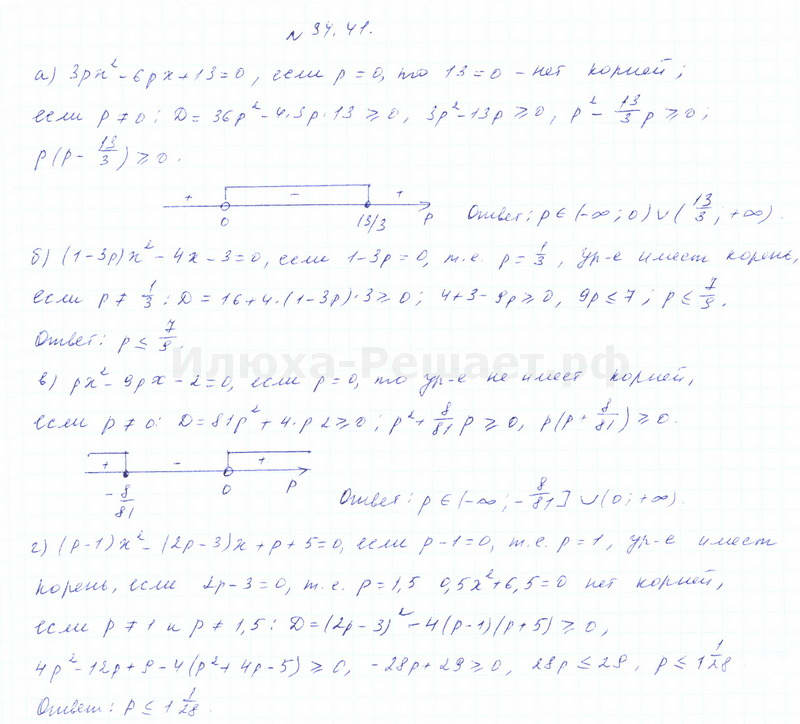 № 34.41.
а) 3px² - 6px + 13 = 0, если p = 0, то 13 = 0 – нет корней;
если p ≠ 0: D = 36p² - 4·3p·13 ≥ 0, 3p² - 13p ≥ 0, p² - 13/3 p ≥ 0;
p(p - 13/3) ≥ 0.
+ – +
0 13/3 p
Ответ: p ∈ (-∞; 0) ∪ (13/3; +∞).
б) (1-3p)x² - 4x - 3 = 0, если 1-3p = 0, т.е. p = 1/3, ур-е имеет корень,
если p ≠ 1/3: D = 16 + 4·(1-3p)·3 ≥ 0; 4+3-9p ≥ 0, 9p ≤ 7; p ≤ 7/9.
Ответ: p ≤ 7/9.
Илюха-Решает.рф
в) px² - 9px - 2 = 0, если p = 0, то ур-е не имеет корней,
если p ≠ 0: D = 81p² + 4·p·2 ≥ 0; p² + 8/81 p ≥ 0, p(p + 8/81) ≥ 0.
+ – +
-8/81 0 p
Ответ: p ∈ (-∞; -8/81] ∪ (0; +∞).
г) (p-1)x² - (2p-3)x + p + 5 = 0, если p-1 = 0, т.е. p = 1, ур-е имеет
корень, если 2p-3 = 0, т.е. p = 1,5 0,5x² + 6,5 = 0 нет корней,
если p ≠ 1 и p ≠ 1,5: D = (2p-3)² - 4(p-1)(p+5) ≥ 0,
4p² - 12p + 9 - 4(p² + 4p - 5) ≥ 0, -28p + 29 ≥ 0, 28p ≤ 29, p ≤ 1 1/28
Ответ: p ≤ 1 1/28.